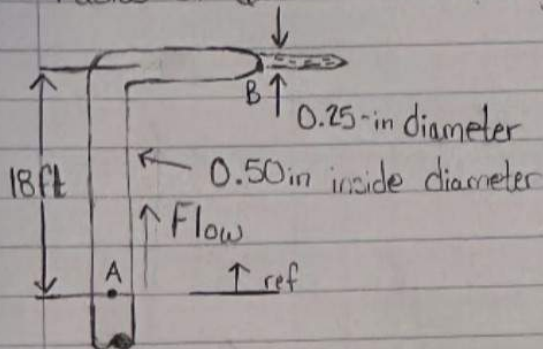 B
0.25-in diameter
18ft
0.50in inside diameter
Flow
A
ref